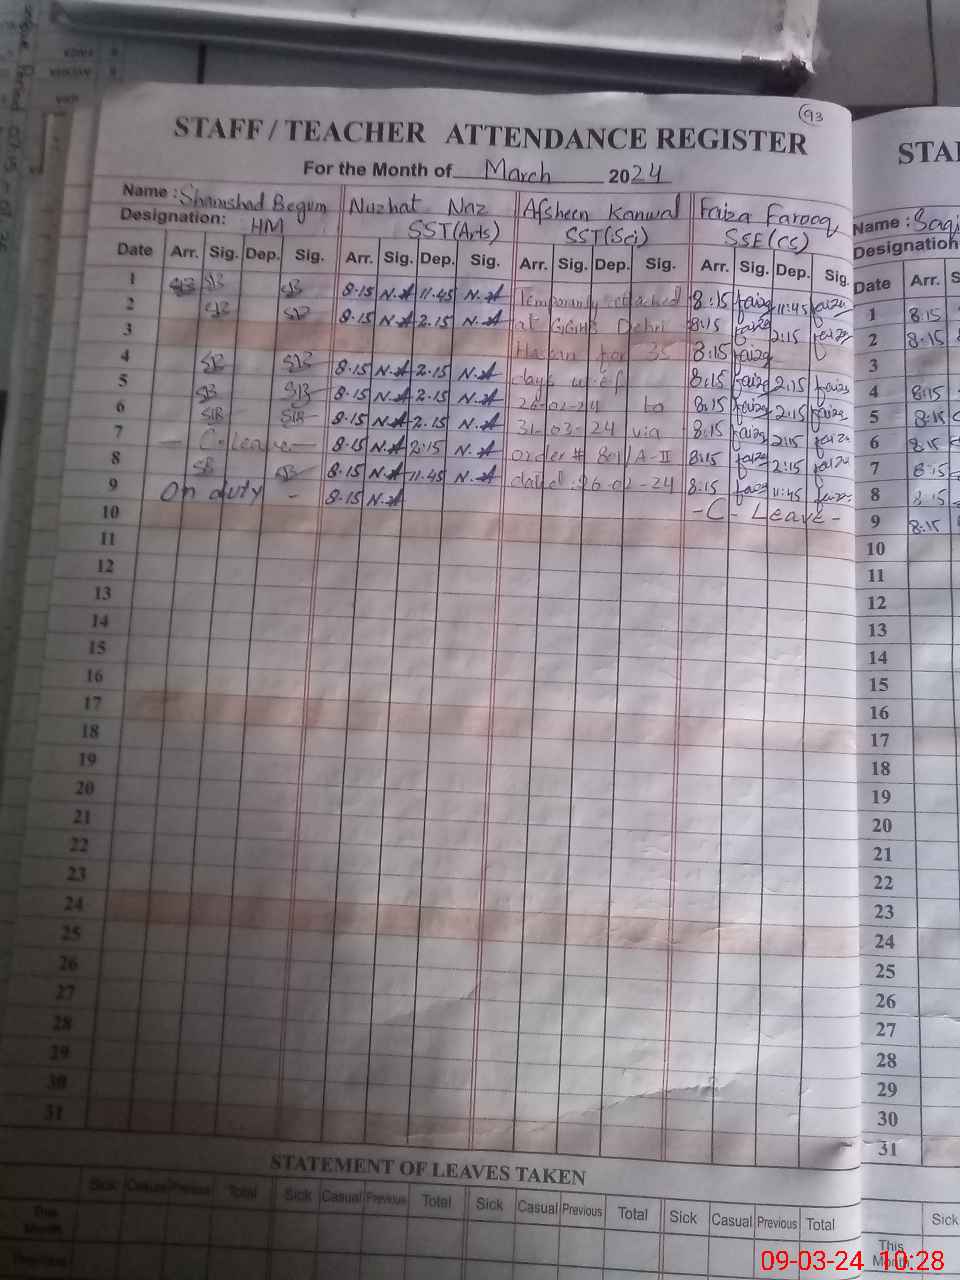 93
STAFF / TEACHER ATTENDANCE REGISTER
For the Month of March 2024
Name : Shamshad Begum Nuzhat Naz Afsheen Kanwal Faiza Farooq
Designation: HM SST(Arts) SST(Sci) SSE(CS)
Date Arr. Sig. Dep. Sig. Arr. Sig. Dep. Sig. Arr. Sig. Dep. Sig. Arr. Sig. Dep. Sig.
1 SB SB SB 8.15 N.A 11.45 N.A Temporarily attached 8:15 faiza 11:45 faiza
2 SB SB 8.15 N.A 2.15 N.A at GGHS Dehri 8:15 faiza 2:15 faiza
3 Hassan for 35 8:15 faiza
4 SB SB 8.15 N.A 2.15 N.A days w.e.f 8:15 faiza 2:15 faiza
5 SB SB 8.15 N.A 2.15 N.A 26-02-24 to 8:15 faiza 2:15 faiza
6 SB SB 8.15 N.A 2.15 N.A 31-03-24 via 8:15 faiza 2:15 faiza
7 - C-Leave - 8.15 N.A 2.15 N.A order # 801/A-II 8:15 faiza 2:15 faiza
8 SB SB 8.15 N.A 11.45 N.A dated :26-02-24 8:15 faiza 11:45 faiza
9 On duty - 8.15 N.A - C - Leave -
10
11
12
13
14
15
16
17
18
19
20
21
22
23
24
25
26
27
28
29
30
31
STATEMENT OF LEAVES TAKEN
Sick Casual Previous Total Sick Casual Previous Total Sick Casual Previous Total Sick Casual Previous Total
This Month
Previous
STA
Name :
Designation
Date Arr.
1 8:15
2 8:15
3
4 8:15
5 8:15
6 8:15
7 8:15
8 8:15
9 8:15
10
11
12
13
14
15
16
17
18
19
20
21
22
23
24
25
26
27
28
29
30
31
Sick
This Month
09-03-24 10:28